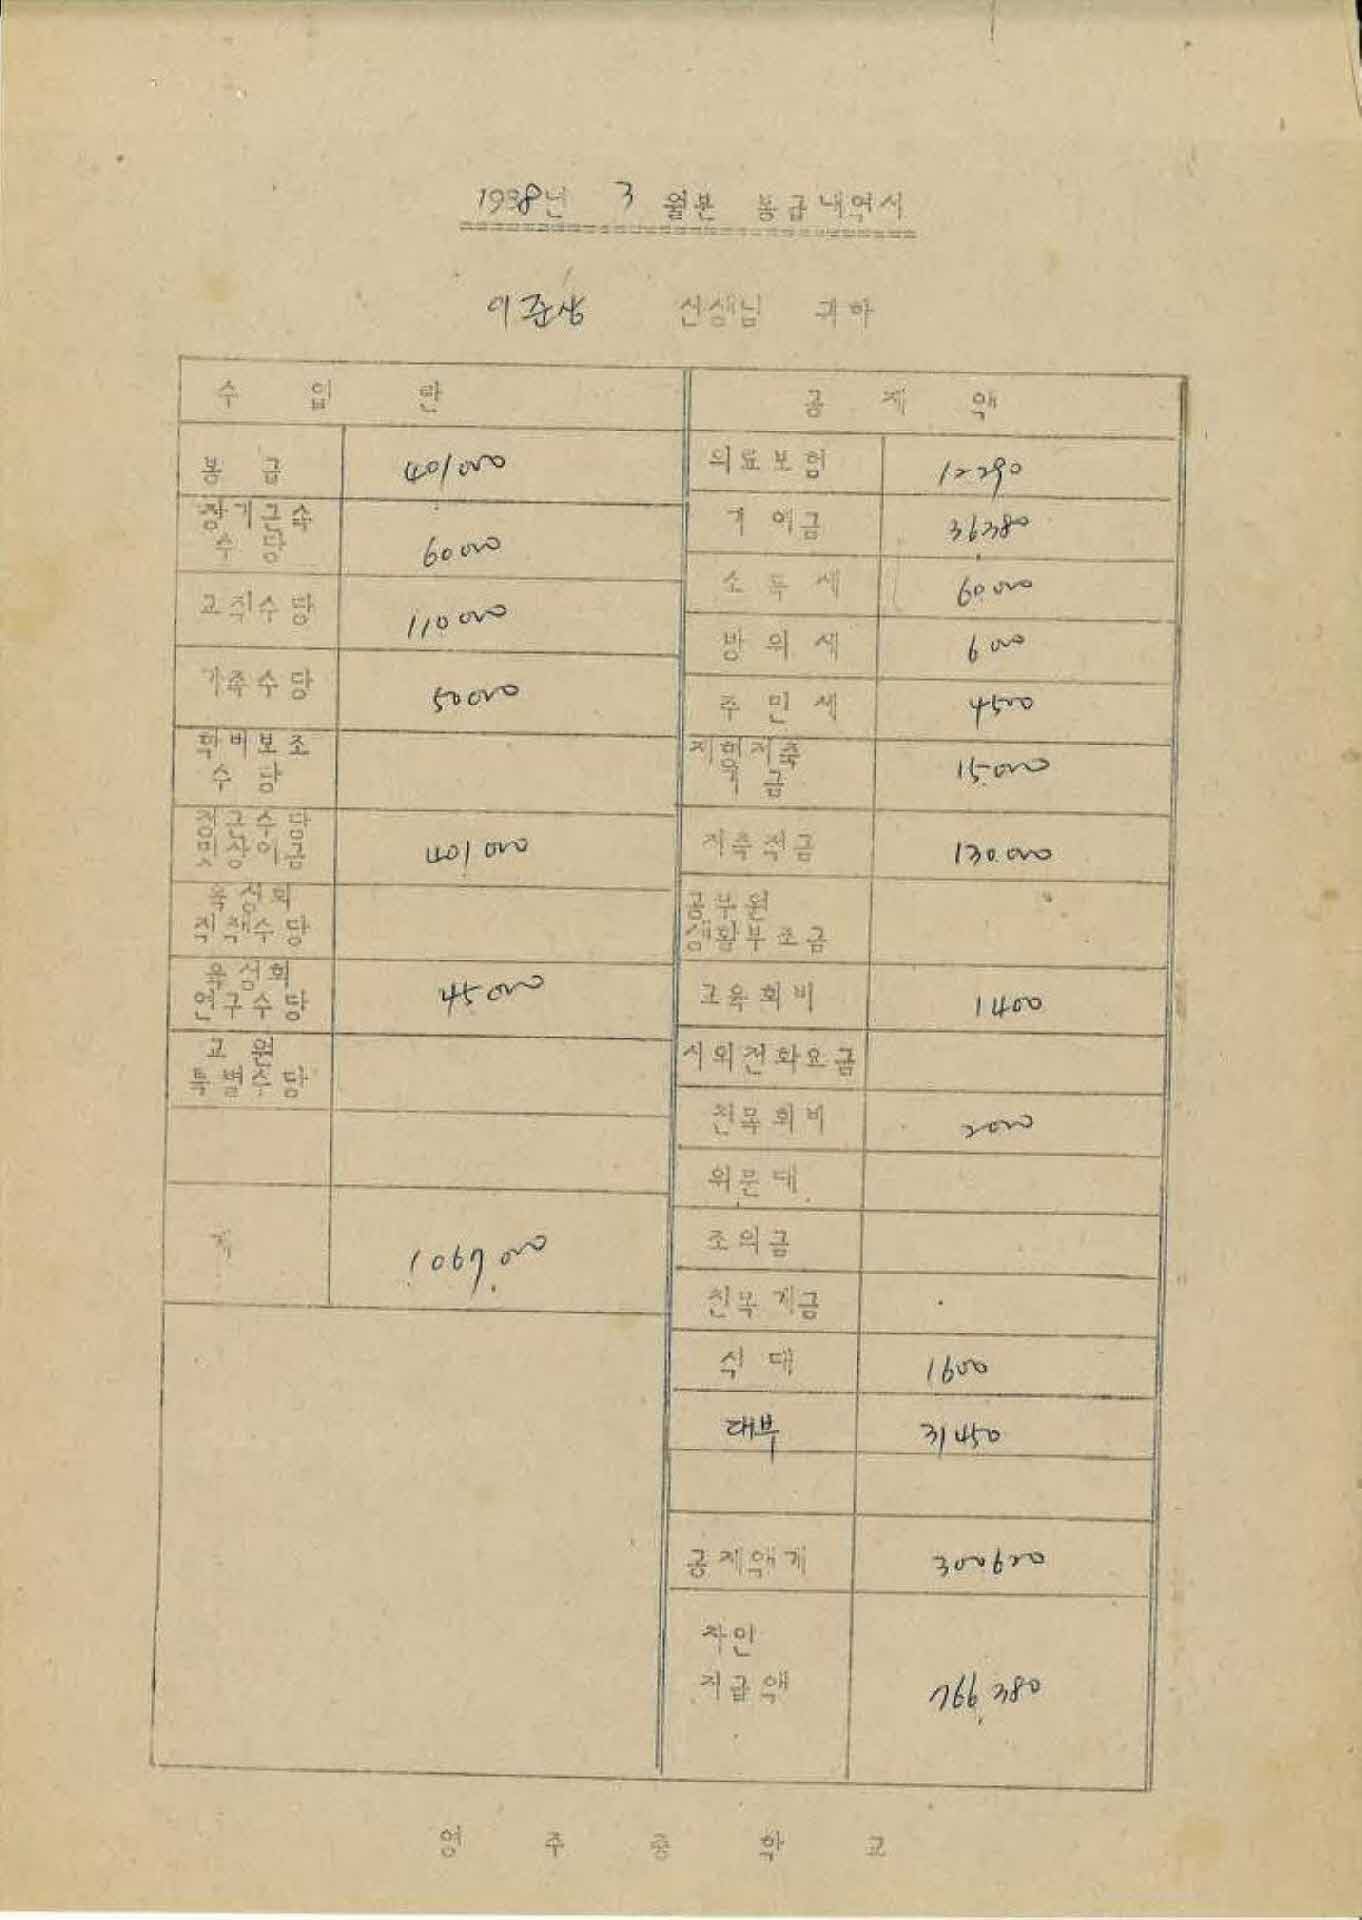 1988년 3 월분 봉급내역서
이준상 선생님 귀하
수 입 란
봉 급 401000
장기근속
수 당 60000
교직수당 110000
가족수당 50000
학비보조
수 당
정근수당
및상이금 401,000
육성회
직책수당
육성회
연구수당 45000
교 원
특별수당
계 1067,000
공 제 액
의료보험 12290
기 여 금 36380
소 득 세 60,000
방 위 세 6000
주 민 세 4500
재형저축
기 금 15,000
저축적금 130,000
공무원
생활부조금
교육회비 1400
시외전화요금
친목회비 2000
위문대
조의금
친목계금
식 대 1600
대부 31450
공제액계 300620
차인
지급액 766,380
영 주 중 학 교